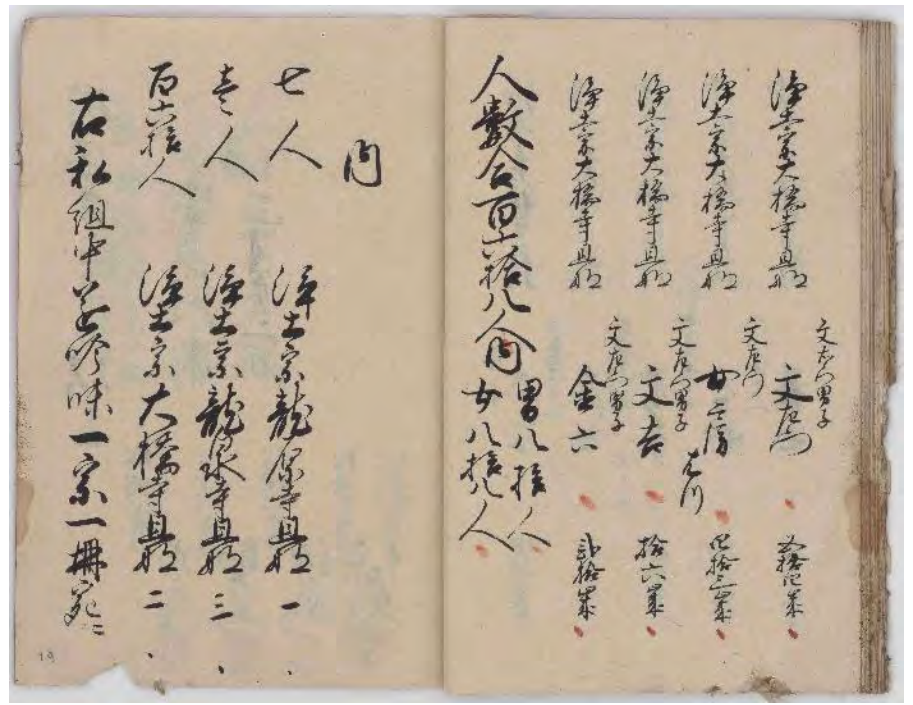 浄土宗大橋寺旦那
文右衛門男子
文左衛門
五拾四歳
浄土宗大橋寺旦那
文左衛門
女房
四拾三歳
浄土宗大橋寺旦那
文左衛門男子
文吉
拾六歳
浄土宗大橋寺旦那
文左衛門男子
金六
弐拾歳
人数合百六拾八人内
男八拾人
女八拾八人
内
七人 浄土宗龍保寺旦那 一
壱人 浄土宗龍泉寺旦那 三
百六拾人 浄土宗大橋寺旦那 二
右私組中並吟味一宗一冊宛ニ
19